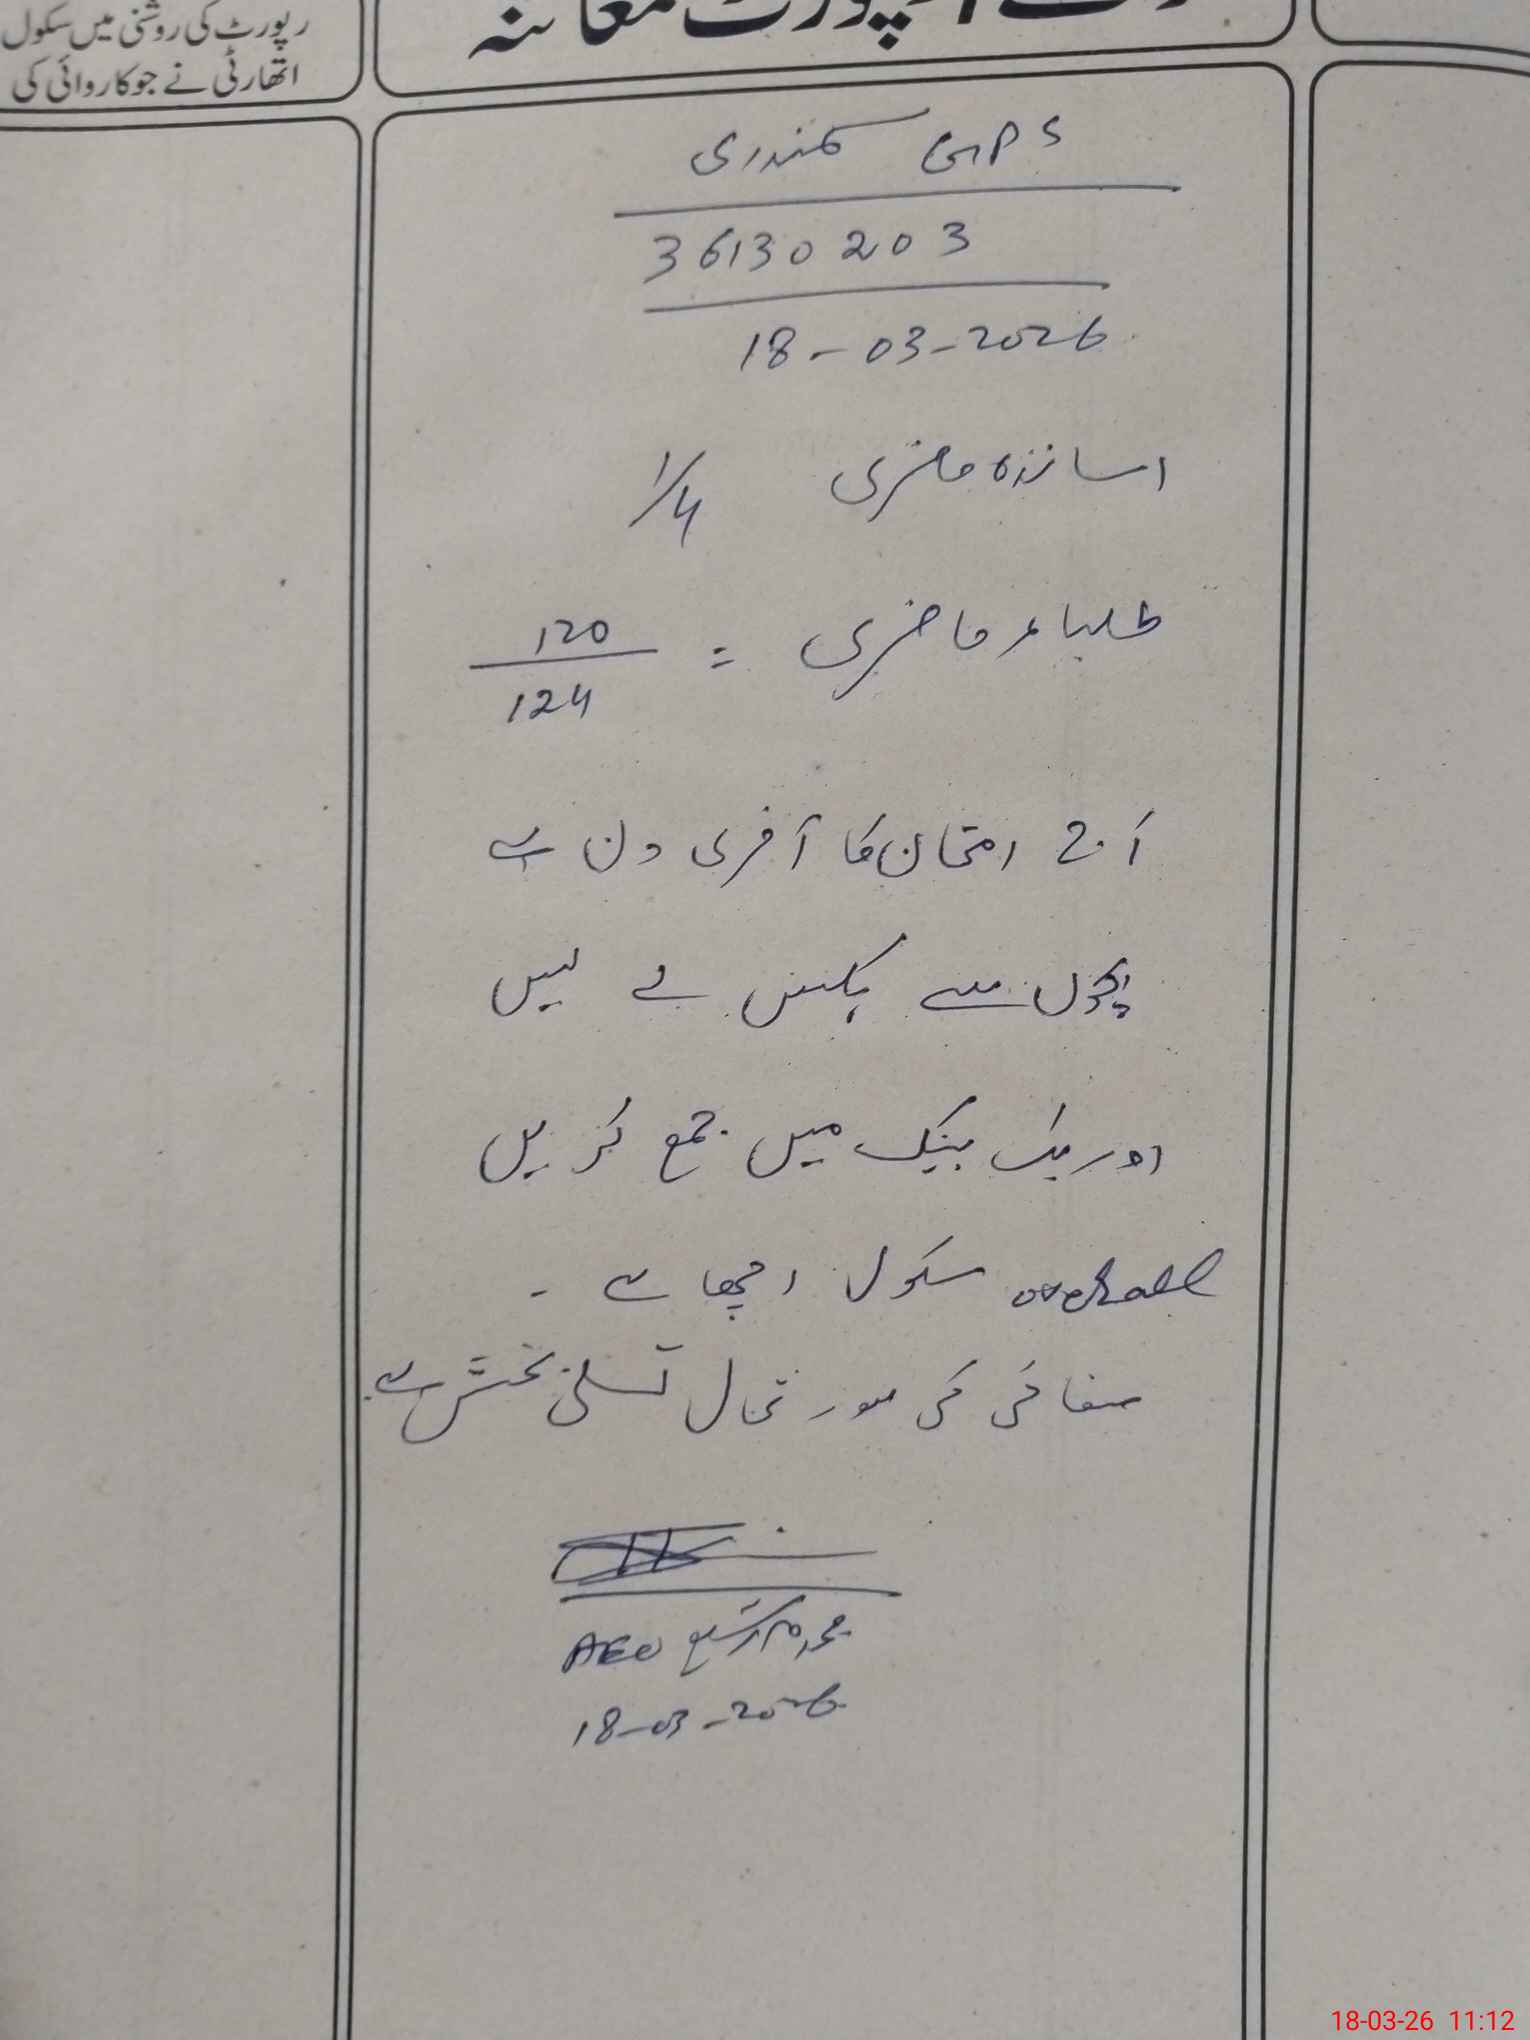 رپورٹ کی روشنی میں سکول
اتھارٹی نے جو کاروائی کی
رپورٹ معائنہ
GPS سمندری
36130203
18-03-2026
اساتذہ حاضری 1/4
طلباء حاضری = 120/124
آج امتحان کا آخری دن ہے
بچوں سے بکس لے لیں
اور بک بینک میں جمع کریں
overall سکول اچھا ہے -
صفائی کی صورتحال تسلی بخش ہے
AEO
18-03-2026
18-03-26 11:12